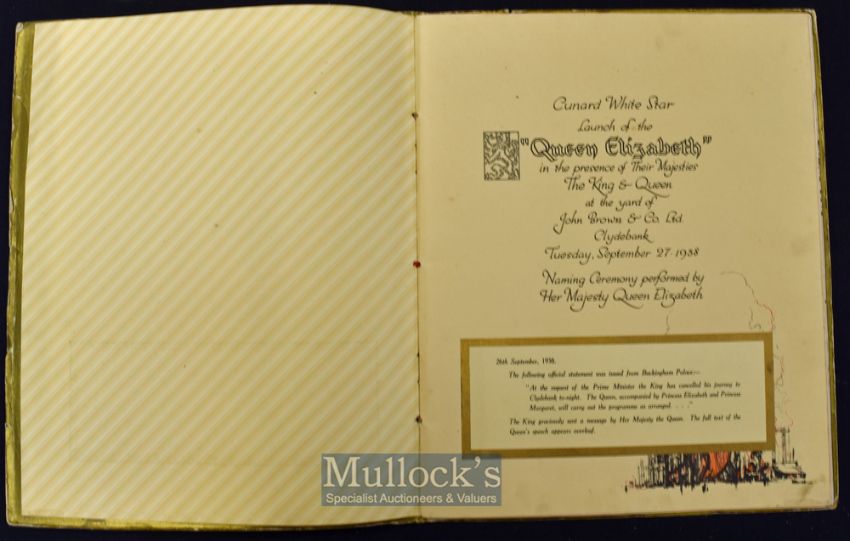 Cunard White Star
Launch of the
"Queen Elizabeth"
in the presence of Their Majesties
The King & Queen
at the yard of
John Brown & Co. Ltd.
Clydebank
Tuesday, September 27 · 1938
Naming Ceremony performed by
Her Majesty Queen Elizabeth
26th September, 1938.
The following official statement was issued from Buckingham Palace:—
"At the request of the Prime Minister the King has cancelled his journey to
Clydebank to-night. The Queen, accompanied by Princess Elizabeth and Princess
Margaret, will carry out the programme as arranged . . ."
The King graciously sent a message by Her Majesty the Queen. The full text of the
Queen's speech appears overleaf.
Mullock's
Specialist Auctioneers & Valuers